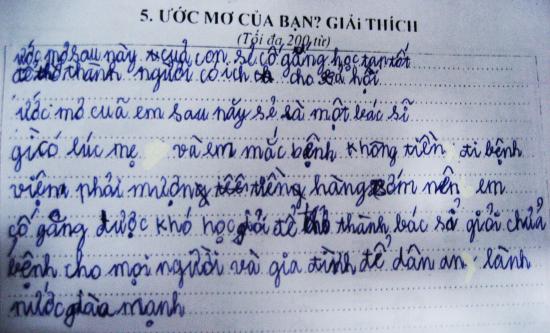 5. ƯỚC MƠ CỦA BẠN? GIẢI THÍCH
(Tối đa 200 từ)
ước mơ sau này của con sẽ cố gắng học tập tốt
để thở thành người có ích cho xã hội
ước mơ cuã em sau nãy sẻ là một bác sĩ
gì có lúc mẹ và em mắc bệnh không tiền đi bệnh
viện phải mượng tiềng hàng xóm nên em
cố gắng được khó học giỏi để thành bác sỉ giỏi chửa
bệnh cho mọi người và gia đình để dân an lành
nước giàu mạnh